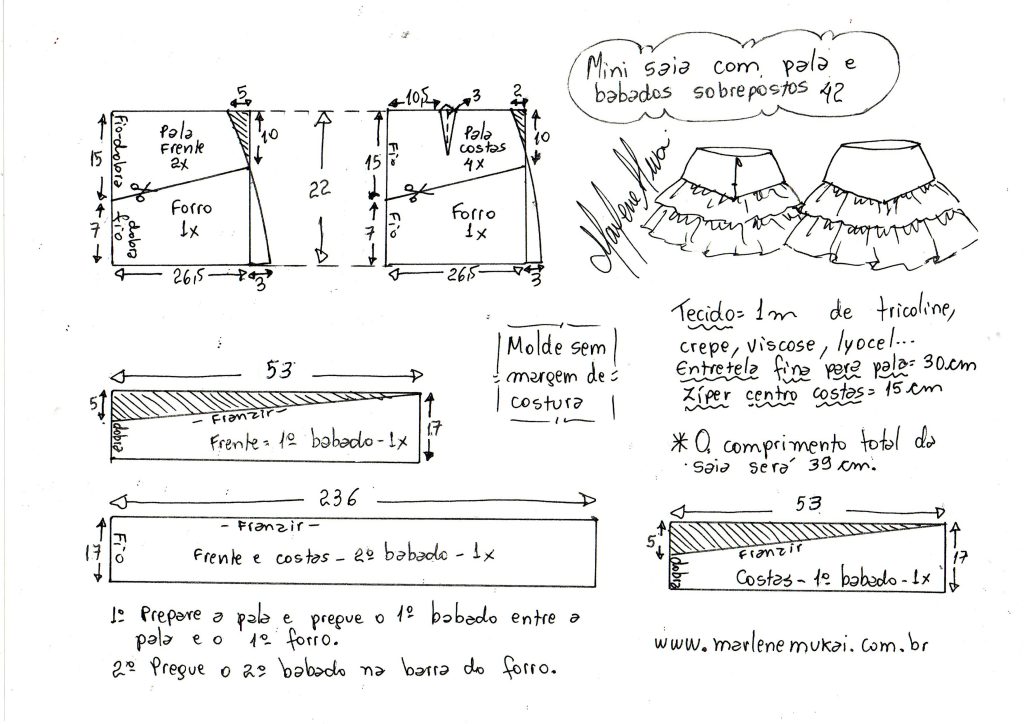 Mini saia com pala e
babados sobrepostos 42
Marlene Mukai
5
10
15
7
22
Fio-dobra
Pala
Frente
2x
Forro
1x
dobra
fio
26,5
3
10,5
3
2
10
15
7
Fio
Pala
costas
4x
Fio
Forro
1x
26,5
3
Tecido= 1m de tricoline,
crepe, viscose, lyocel...
Entretela fina para pala= 30cm
Zíper centro costas= 15cm
* O comprimento total da
saia será 39cm.
Molde sem
margem de
costura
53
5
17
dobra
- Franzir -
Frente= 1º babado-1x
236
17
Fio
- Franzir -
Frente e costas - 2º babado - 1x
53
5
17
dobra
Franzir
Costas- 1º babado-1x
1º Prepare a pala e pregue o 1º babado entre a
pala e o 1º forro.
2º Pregue o 2º babado na barra do forro.
www.marlenemukai.com.br